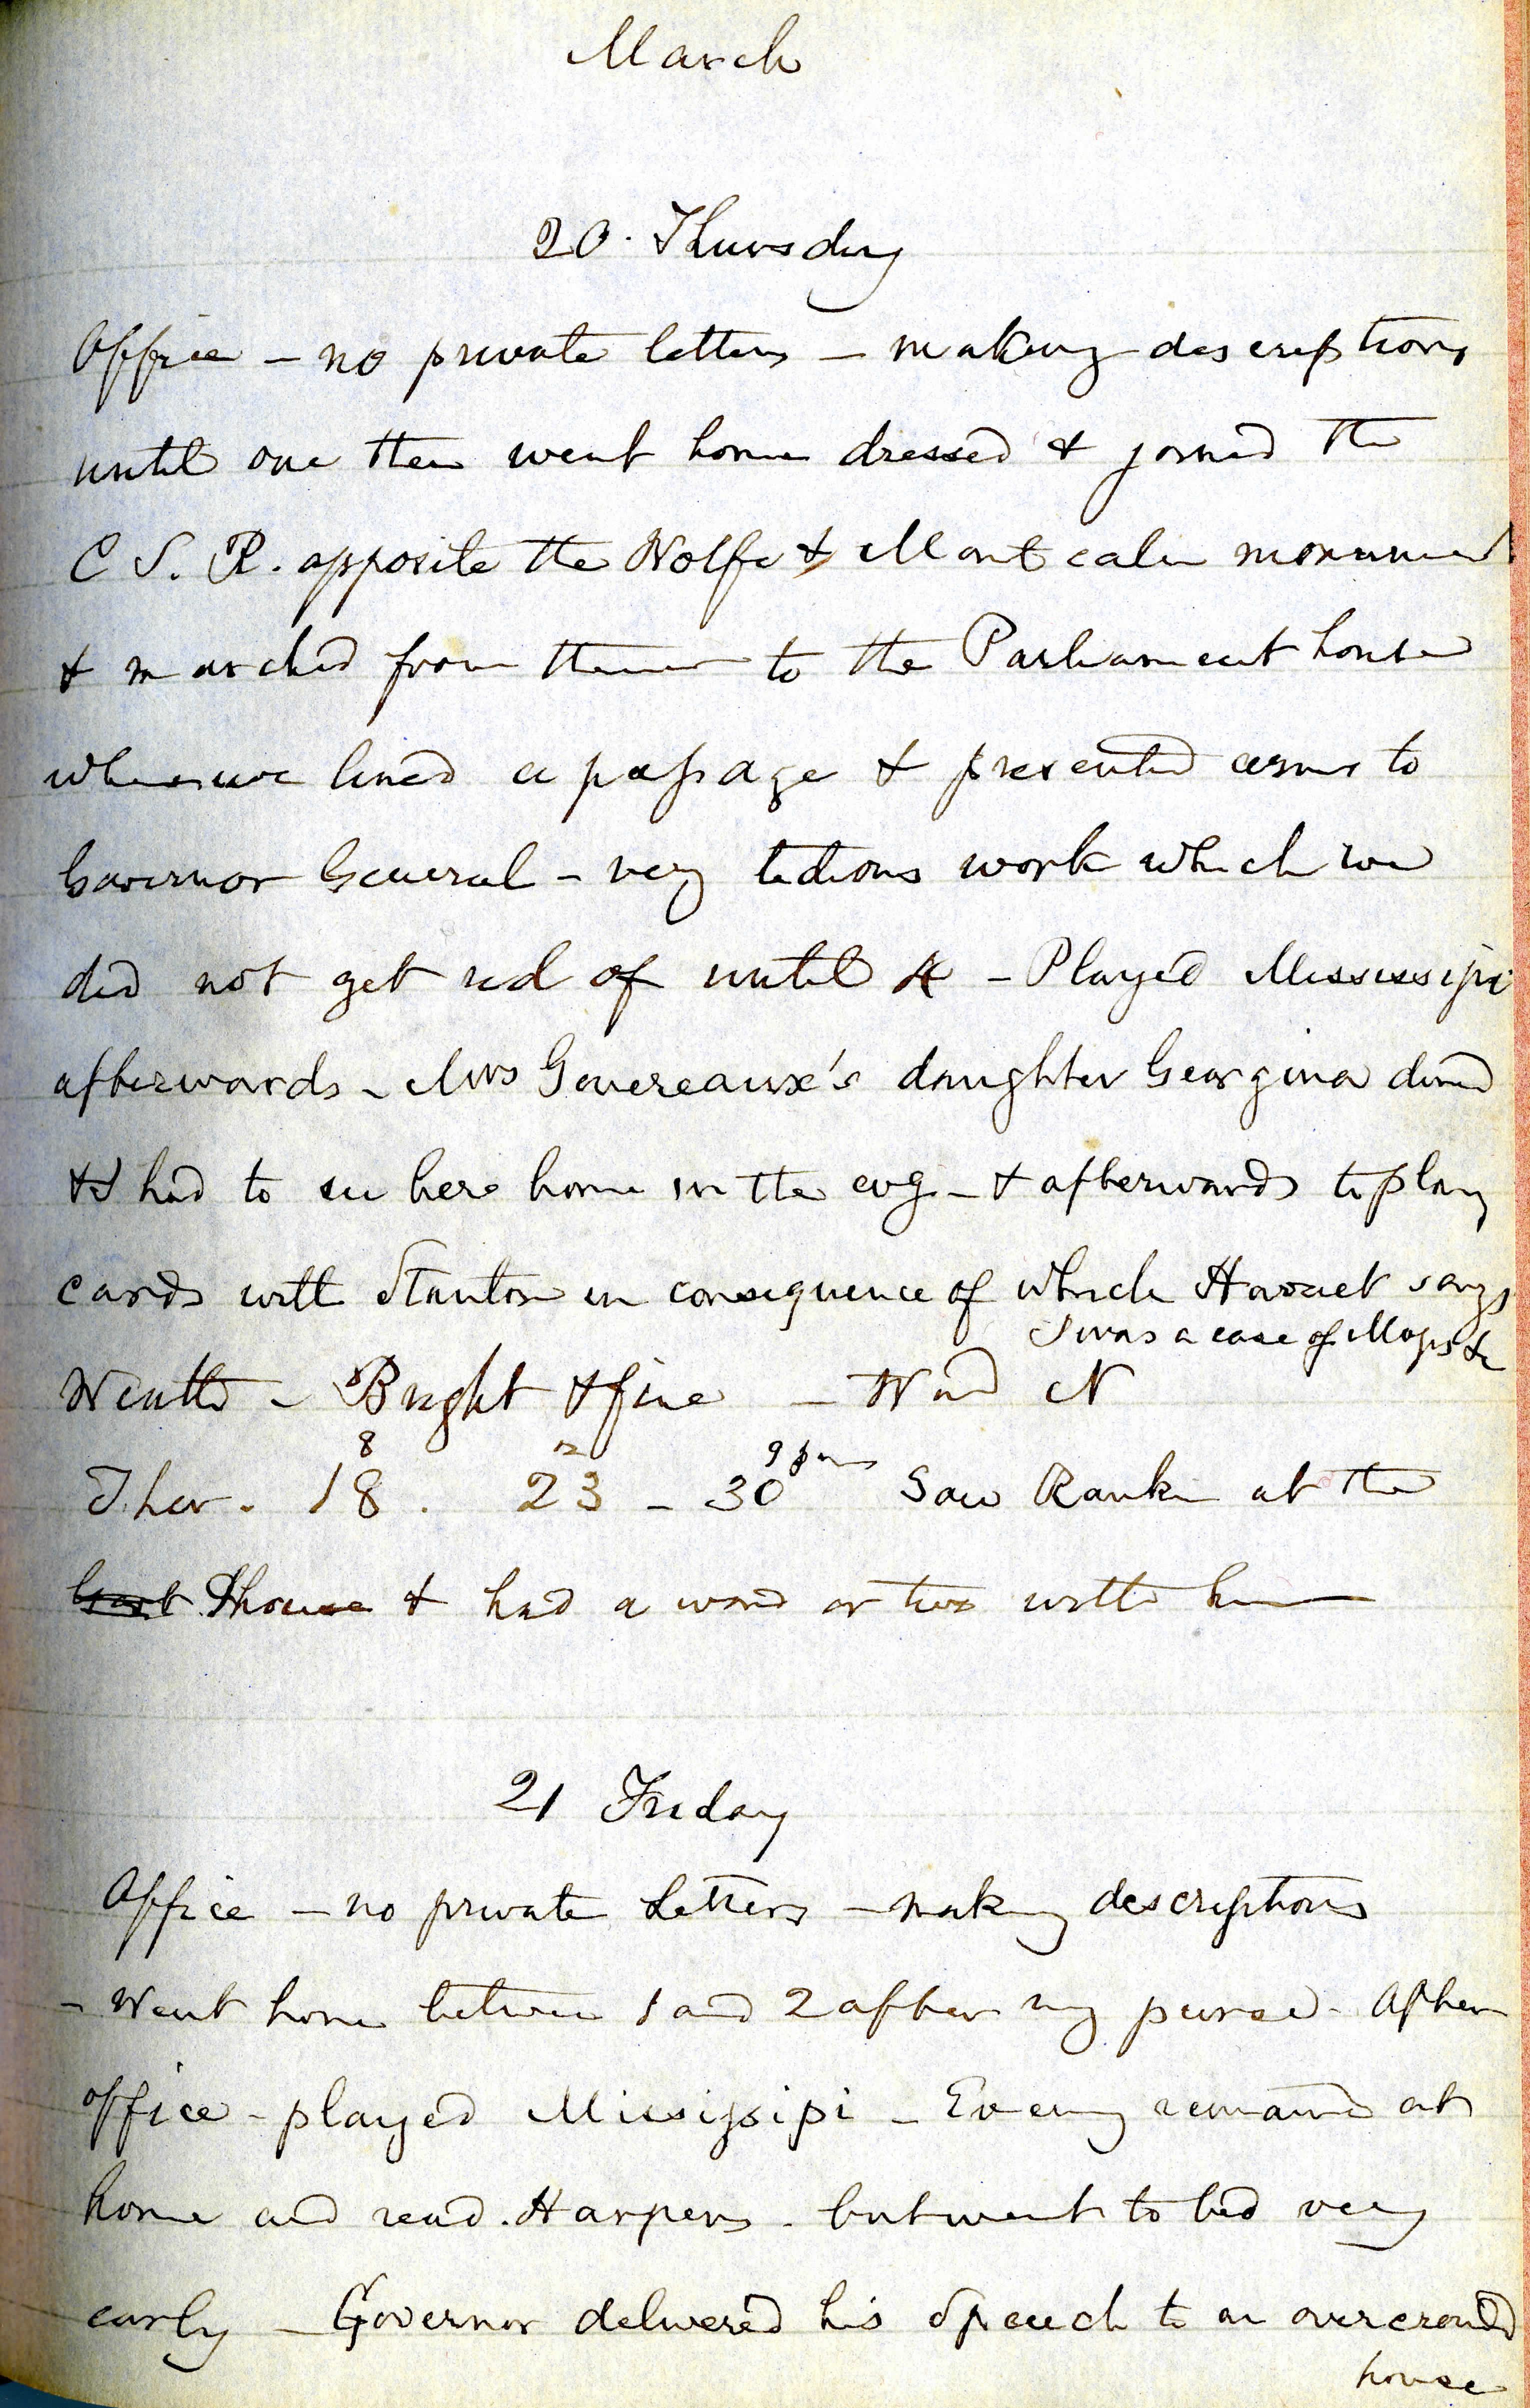 March
20. Thursday
Office - no private letters - making descriptions
until one then went home dressed & joined the
C S. R. opposite the Wolfe & Montcalm monument
& marched from thence to the Parliament house
where we lined a passage & presented arms to
Governor General - very tedious work which we
did not get rid of until 4 - Played Mississipi
afterwards - Mrs Gouereaux's daughter Georgina dined
& I had to see here home in the evg - & afterwards to play
cards with Stanton in consequence of which Harriet says
I was a case of Mops &c
Weath - Bright & fine - Wind N
8 12 9 pm
Ther. 18. 23 - 30 Saw Rankin at the
house & had a word or two with him
21 Friday
Office - no private letters - making descriptions
- Went home between 1 and 2 after my purse - After
office - played Missisipi - Evening remained at
home and read Harpers - but went to bed very
early - Governor delivered his Speech to an overcrowded
house